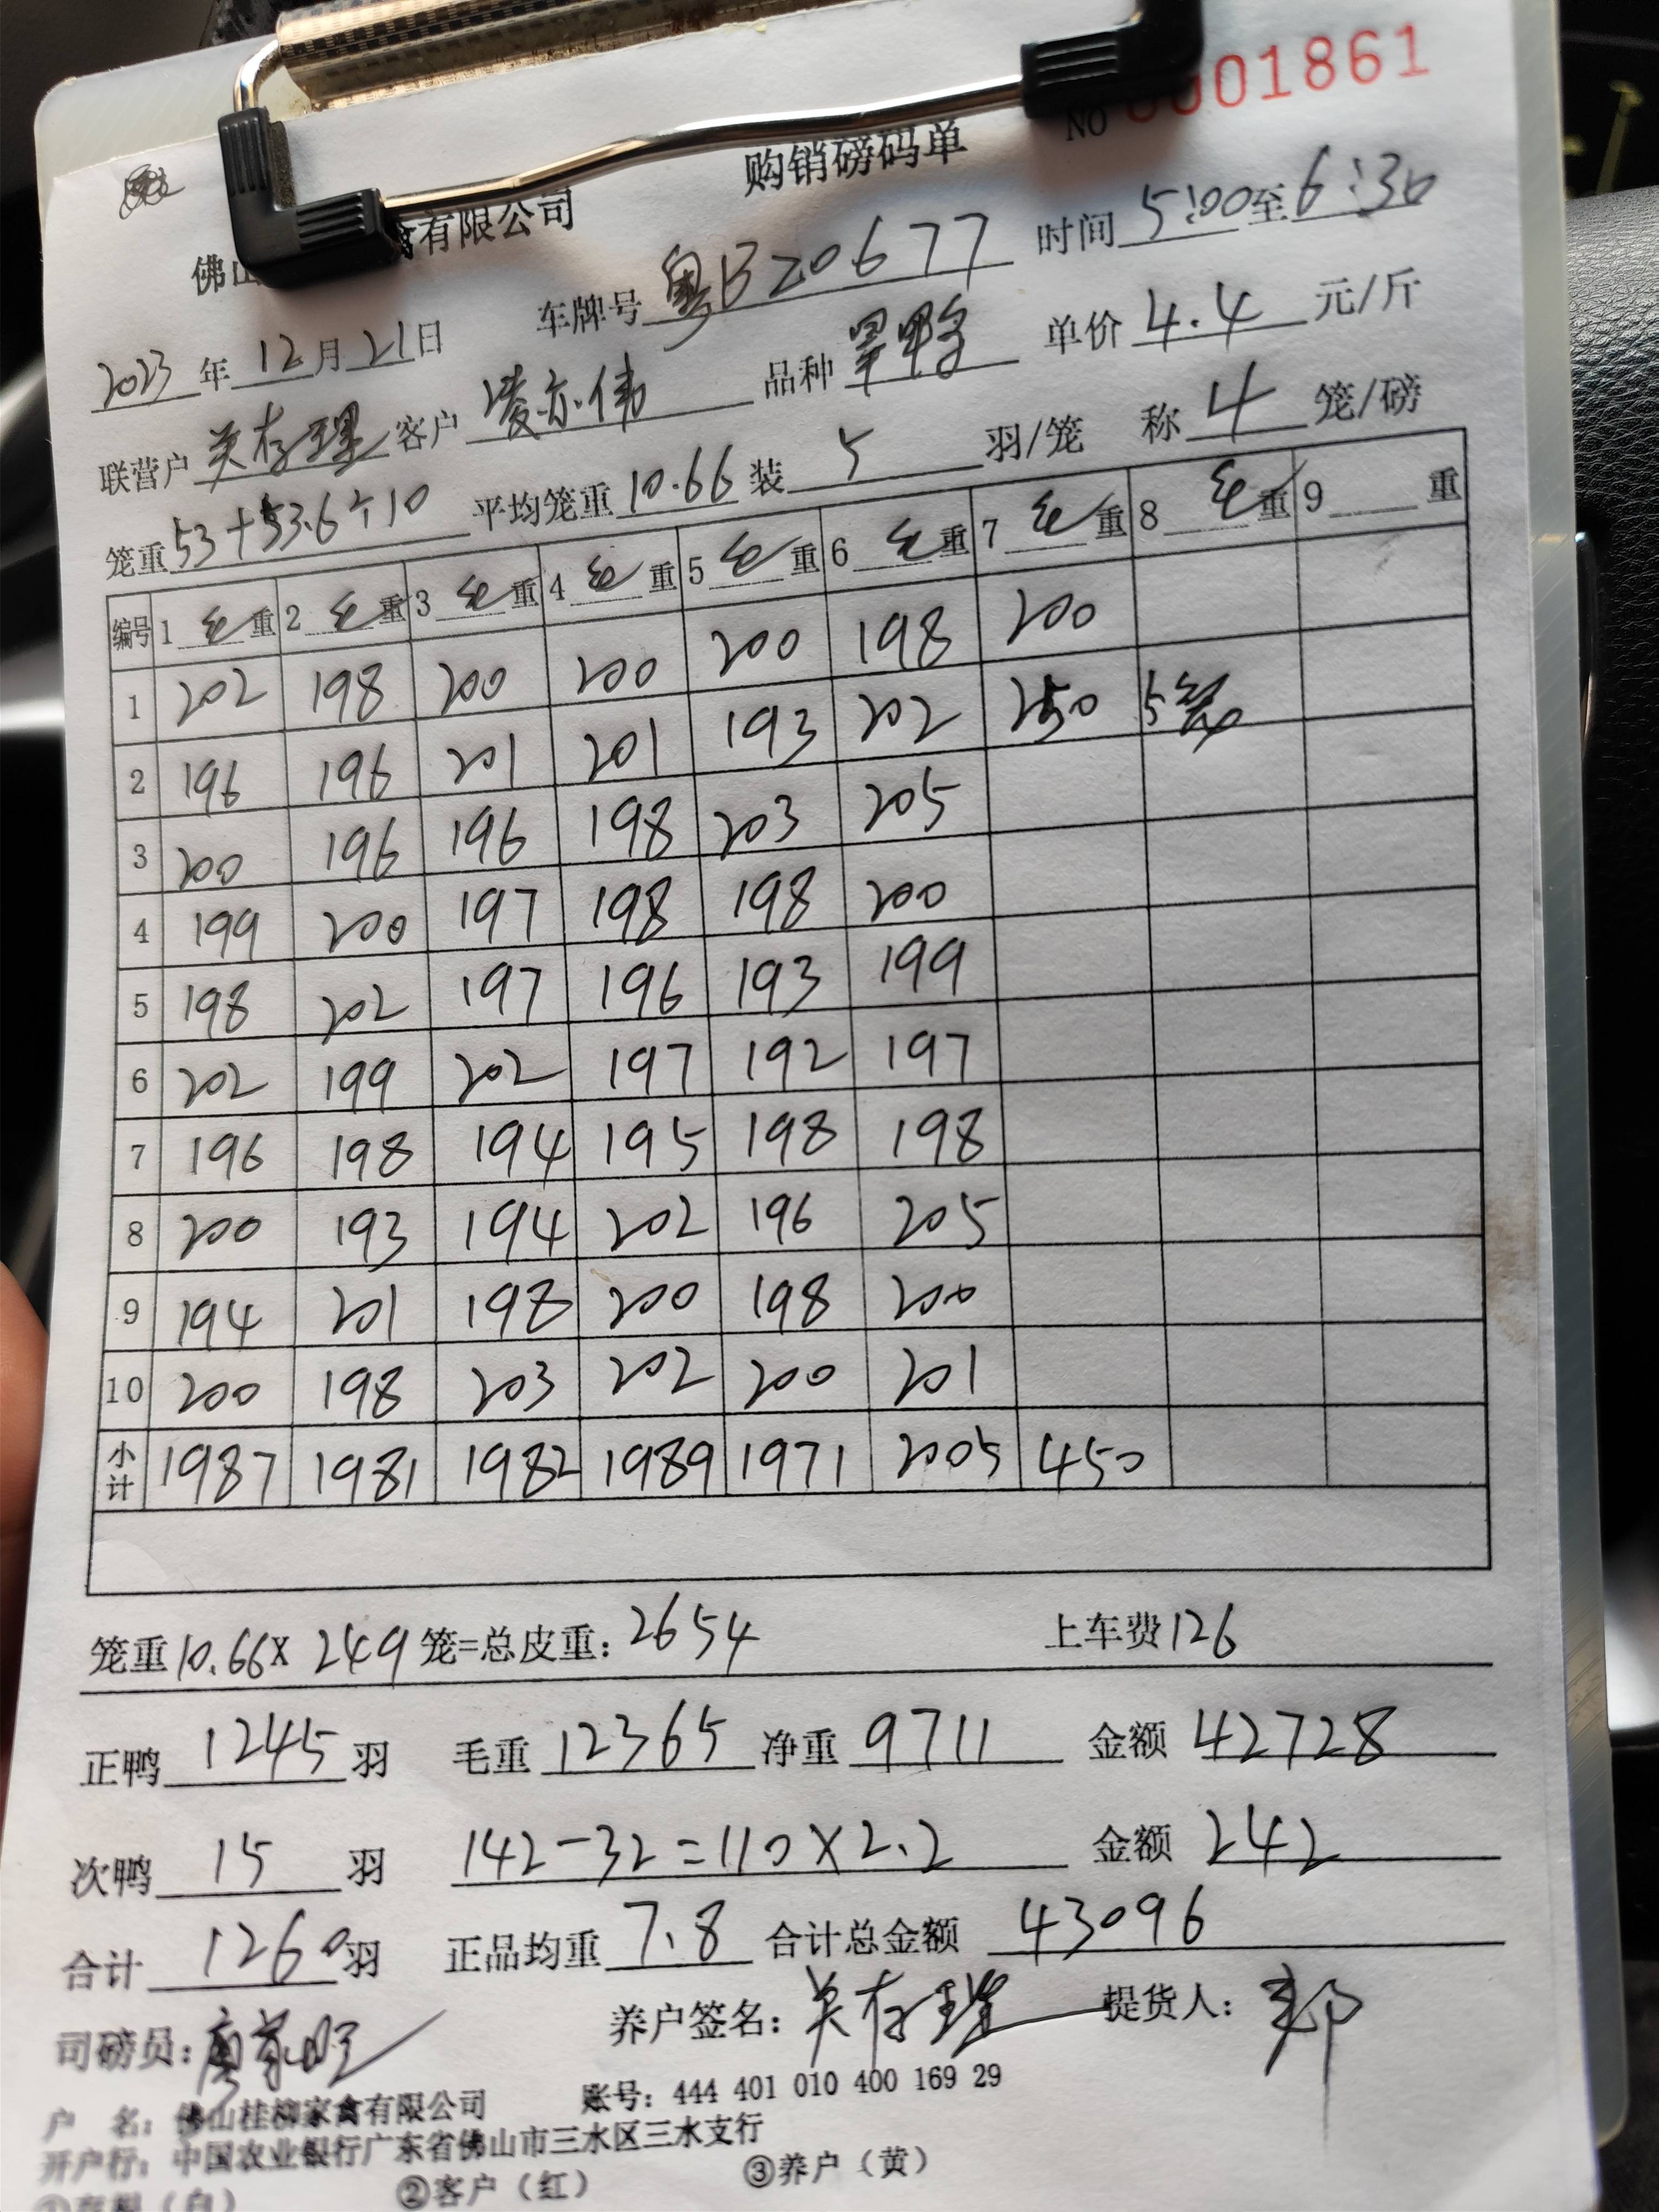 购销磅码单
NO 0001861
佛山 禽有限公司
2023年12月21日 车牌号粤B20677 时间5:00至6:30
联营户关存理 客户凌亦伟 品种旱鸭 单价4.4元/斤
笼重53+53.6÷10 平均笼重10.66 装5羽/笼 称4笼/磅
编号 1 毛重 2 毛重 3 毛重 4 毛重 5 毛重 6 毛重 7 毛重 8 毛重 9 重
1 202 198 200 200 200 198 200
2 196 196 201 201 193 202 250 5笼
3 200 196 196 198 203 205
4 199 200 197 198 198 200
5 198 202 197 196 193 199
6 202 199 202 197 192 197
7 196 198 194 195 198 198
8 200 193 194 202 196 205
9 194 201 198 200 198 200
10 200 198 203 202 200 201
小计 1987 1981 1982 1989 1971 2005 450
笼重10.66×249笼=总皮重:2654 上车费126
正鸭1245羽 毛重12365 净重9711 金额42728
次鸭15羽 142-32=110×2.2 金额242
合计1260羽 正品均重7.8 合计总金额43096
司磅员: 养户签名:关存理 提货人:
户 名:佛山桂柳家禽有限公司 账号:444 401 010 400 169 29
开户行:中国农业银行广东省佛山市三水区三水支行
②客户(红) ③养户(黄)